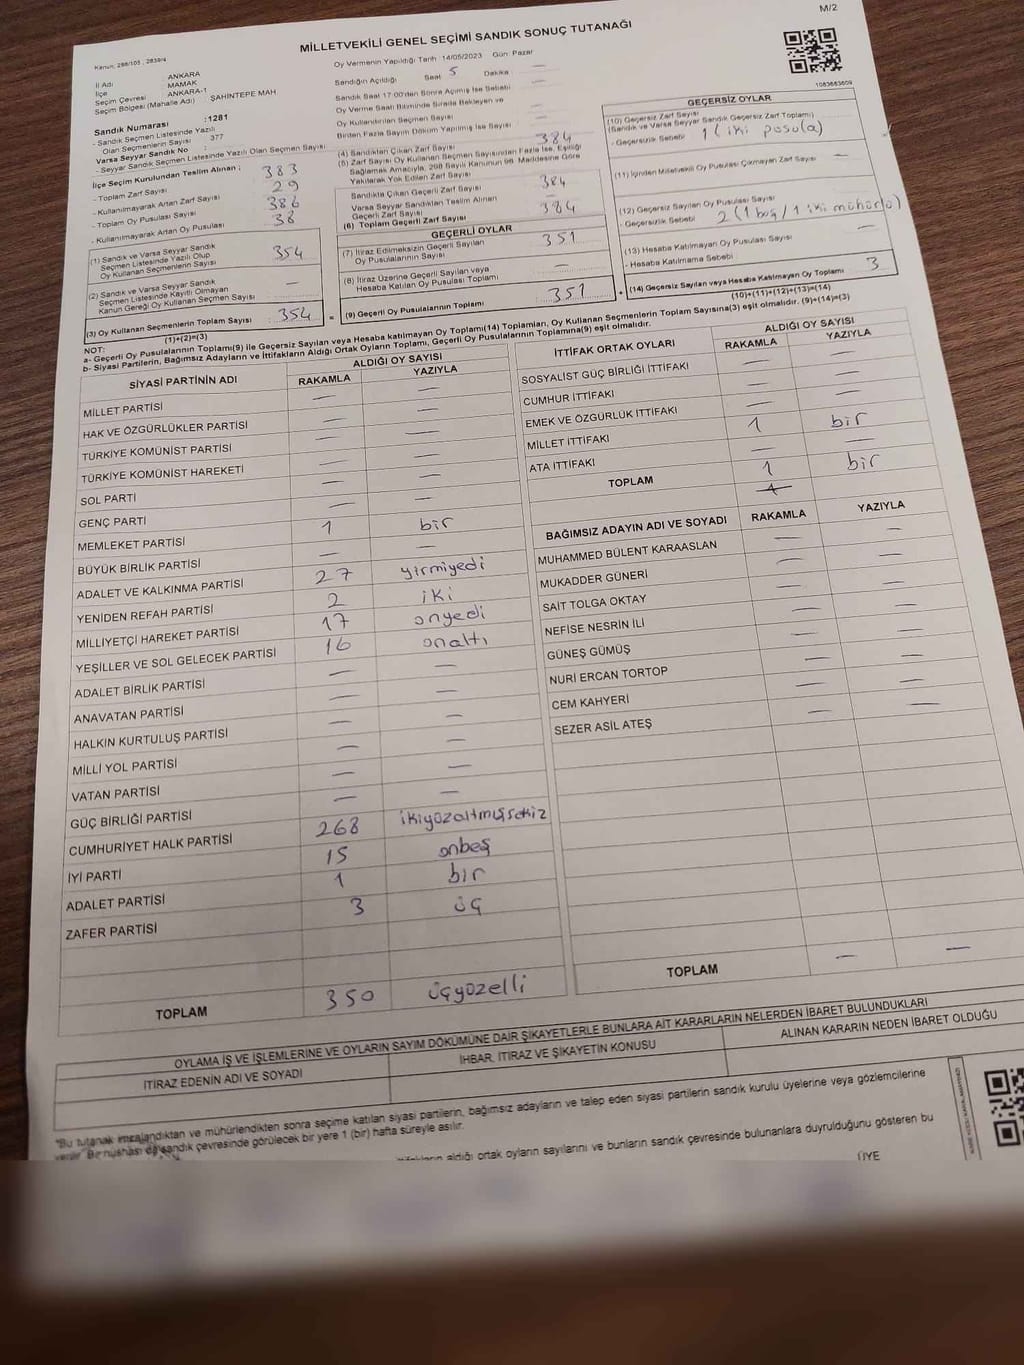 M/2
MİLLETVEKİLİ GENEL SEÇİMİ SANDIK SONUÇ TUTANAĞI
Kanun: 298/105 , 2839/4
İl Adı : ANKARA
İlçe : MAMAK
Seçim Çevresi : ANKARA-1
Seçim Bölgesi (Mahalle Adı) : ŞAHİNTEPE MAH.
Sandık Numarası :1281
- Sandık Seçmen Listesinde Yazılı
Olan Seçmenlerin Sayısı : 377
Varsa Seyyar Sandık No :
- Seyyar Sandık Seçmen Listesinde Yazılı Olan Seçmen Sayısı :
İlçe Seçim Kurulundan Teslim Alınan ;
- Toplam Zarf Sayısı 383
- Kullanılmayarak Artan Zarf Sayısı 29
- Toplam Oy Pusulası Sayısı 386
- Kullanılmayarak Artan Oy Pusulası 38
(1) Sandık ve Varsa Seyyar Sandık
Seçmen Listesinde Yazılı Olup
Oy Kullanan Seçmenlerin Sayısı 354
(2) Sandık ve Varsa Seyyar Sandık
Seçmen Listesinde Kayıtlı Olmayan
Kanun Gereği Oy Kullanan Seçmen Sayısı —
(3) Oy Kullanan Seçmenlerin Toplam Sayısı 354
(1)+(2)=(3)
Oy Vermenin Yapıldığı Tarih 14/05/2023 Gün: Pazar
Sandığın Açıldığı Saat 5 Dakika —
Sandık Saat 17:00'den Sonra Açılmış İse Sebebi —
Oy Verme Saati Bitiminde Sırada Bekleyen ve
Oy Kullandırılan Seçmen Sayısı —
Birden Fazla Sayım Döküm Yapılmış İse Sayısı —
(4) Sandıktan Çıkan Zarf Sayısı 384
(5) Zarf Sayısı Oy Kullanan Seçmen Sayısından Fazla İse, Eşitliği
Sağlamak Amacıyla, 298 Sayılı Kanunun 98. Maddesine Göre
Yakılarak Yok Edilen Zarf Sayısı —
Sandıkta Çıkan Geçerli Zarf Sayısı 384
Varsa Seyyar Sandıktan Teslim Alınan
Geçerli Zarf Sayısı —
(6) Toplam Geçerli Zarf Sayısı 384
GEÇERLİ OYLAR
(7) İtiraz Edilmeksizin Geçerli Sayılan
Oy Pusulalarının Sayısı 351
(8) İtiraz Üzerine Geçerli Sayılan veya
Hesaba Katılan Oy Pusulası Toplamı —
= (9) Geçerli Oy Pusulalarının Toplamı 351 +
1083683609
GEÇERSİZ OYLAR
(10) Geçersiz Zarf Sayısı
(Sandık ve Varsa Seyyar Sandık Geçersiz Zarf Toplamı)
- Geçersizlik Sebebi 1 (iki pusula)
(11) İçinden Milletvekili Oy Pusulası Çıkmayan Zarf Sayısı —
(12) Geçersiz Sayılan Oy Pusulası Sayısı
- Geçersizlik Sebebi 2 (1 boş / 1 iki mühürlü)
(13) Hesaba Katılmayan Oy Pusulası Sayısı —
- Hesaba Katılmama Sebebi
(14) Geçersiz Sayılan veya Hesaba Katılmayan Oy Toplamı 3
(10)+(11)+(12)+(13)=(14)
NOT:
a- Geçerli Oy Pusulalarının Toplamı(9) ile Geçersiz Sayılan veya Hesaba katılmayan Oy Toplamı(14) Toplamları, Oy Kullanan Seçmenlerin Toplam Sayısına(3) eşit olmalıdır. (9)+(14)=(3)
b- Siyasi Partilerin, Bağımsız Adayların ve İttifakların Aldığı Ortak Oyların Toplamı, Geçerli Oy Pusulalarının Toplamına(9) eşit olmalıdır.
SİYASİ PARTİNİN ADI ALDIĞI OY SAYISI
RAKAMLA YAZIYLA
MİLLET PARTİSİ — —
HAK VE ÖZGÜRLÜKLER PARTİSİ — —
TÜRKİYE KOMÜNİST PARTİSİ — —
TÜRKİYE KOMÜNİST HAREKETİ — —
SOL PARTİ — —
GENÇ PARTİ — —
MEMLEKET PARTİSİ 1 bir
BÜYÜK BİRLİK PARTİSİ — —
ADALET VE KALKINMA PARTİSİ 27 yirmiyedi
YENİDEN REFAH PARTİSİ 2 iki
MİLLİYETÇİ HAREKET PARTİSİ 17 onyedi
YEŞİLLER VE SOL GELECEK PARTİSİ 16 onaltı
ADALET BİRLİK PARTİSİ — —
ANAVATAN PARTİSİ — —
HALKIN KURTULUŞ PARTİSİ — —
MİLLİ YOL PARTİSİ — —
VATAN PARTİSİ — —
GÜÇ BİRLİĞİ PARTİSİ — —
CUMHURİYET HALK PARTİSİ 268 ikiyüzaltmışsekiz
İYİ PARTİ 15 onbeş
ADALET PARTİSİ 1 bir
ZAFER PARTİSİ 3 üç
TOPLAM 350 üçyüzelli
İTTİFAK ORTAK OYLARI ALDIĞI OY SAYISI
RAKAMLA YAZIYLA
SOSYALİST GÜÇ BİRLİĞİ İTTİFAKI — —
CUMHUR İTTİFAKI — —
EMEK VE ÖZGÜRLÜK İTTİFAKI — —
MİLLET İTTİFAKI 1 bir
ATA İTTİFAKI — —
TOPLAM 1 bir
BAĞIMSIZ ADAYIN ADI VE SOYADI RAKAMLA YAZIYLA
MUHAMMED BÜLENT KARAASLAN — —
MUKADDER GÜNERİ — —
SAİT TOLGA OKTAY — —
NEFİSE NESRİN İLİ — —
GÜNEŞ GÜMÜŞ — —
NURİ ERCAN TORTOP — —
CEM KAHYERİ — —
SEZER ASİL ATEŞ — —
TOPLAM — —
OYLAMA İŞ VE İŞLEMLERİNE VE OYLARIN SAYIM DÖKÜMÜNE DAİR ŞİKAYETLERLE BUNLARA AİT KARARLARIN NELERDEN İBARET BULUNDUKLARI
İTİRAZ EDENİN ADI VE SOYADI İHBAR, İTİRAZ VE ŞİKAYETİN KONUSU ALINAN KARARIN NEDEN İBARET OLDUĞU
"Bu tutanak imzalandıktan ve mühürlendikten sonra seçime katılan siyasi partilerin, bağımsız adayların ve talep eden siyasi partilerin sandık kurulu üyelerine veya gözlemcilerine
verilir. Bir nüshası da sandık çevresinde görülecek bir yere 1 (bir) hafta süreyle asılır.
aldığı ortak oyların sayılarını ve bunların sandık çevresinde bulunanlara duyrulduğunu gösteren bu
ÜYE